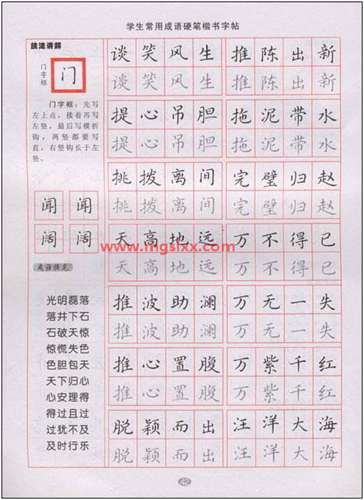 学生常用成语硬笔楷书字帖
技法讲解
门字框
门
门字框:先写
左上点,接着再写
左竖,最后写横折
钩,两竖都要写
直,右竖钩长于左
竖。
闻 闻
阔 阔
成语接龙
光明磊落
落井下石
石破天惊
惊慌失色
色胆包天
天下归心
心安理得
得过且过
过犹不及
及时行乐
谈笑风生 推陈出新
谈笑风生 推陈出新
提心吊胆 拖泥带水
提心吊胆 拖泥带水
挑拨离间 完璧归赵
挑拨离间 完璧归赵
天高地远 万不得已
天高地远 万不得已
推波助澜 万无一失
推波助澜 万无一失
推心置腹 万紫千红
推心置腹 万紫千红
脱颖而出 汪洋大海
脱颖而出 汪洋大海
www.mgslxx.com